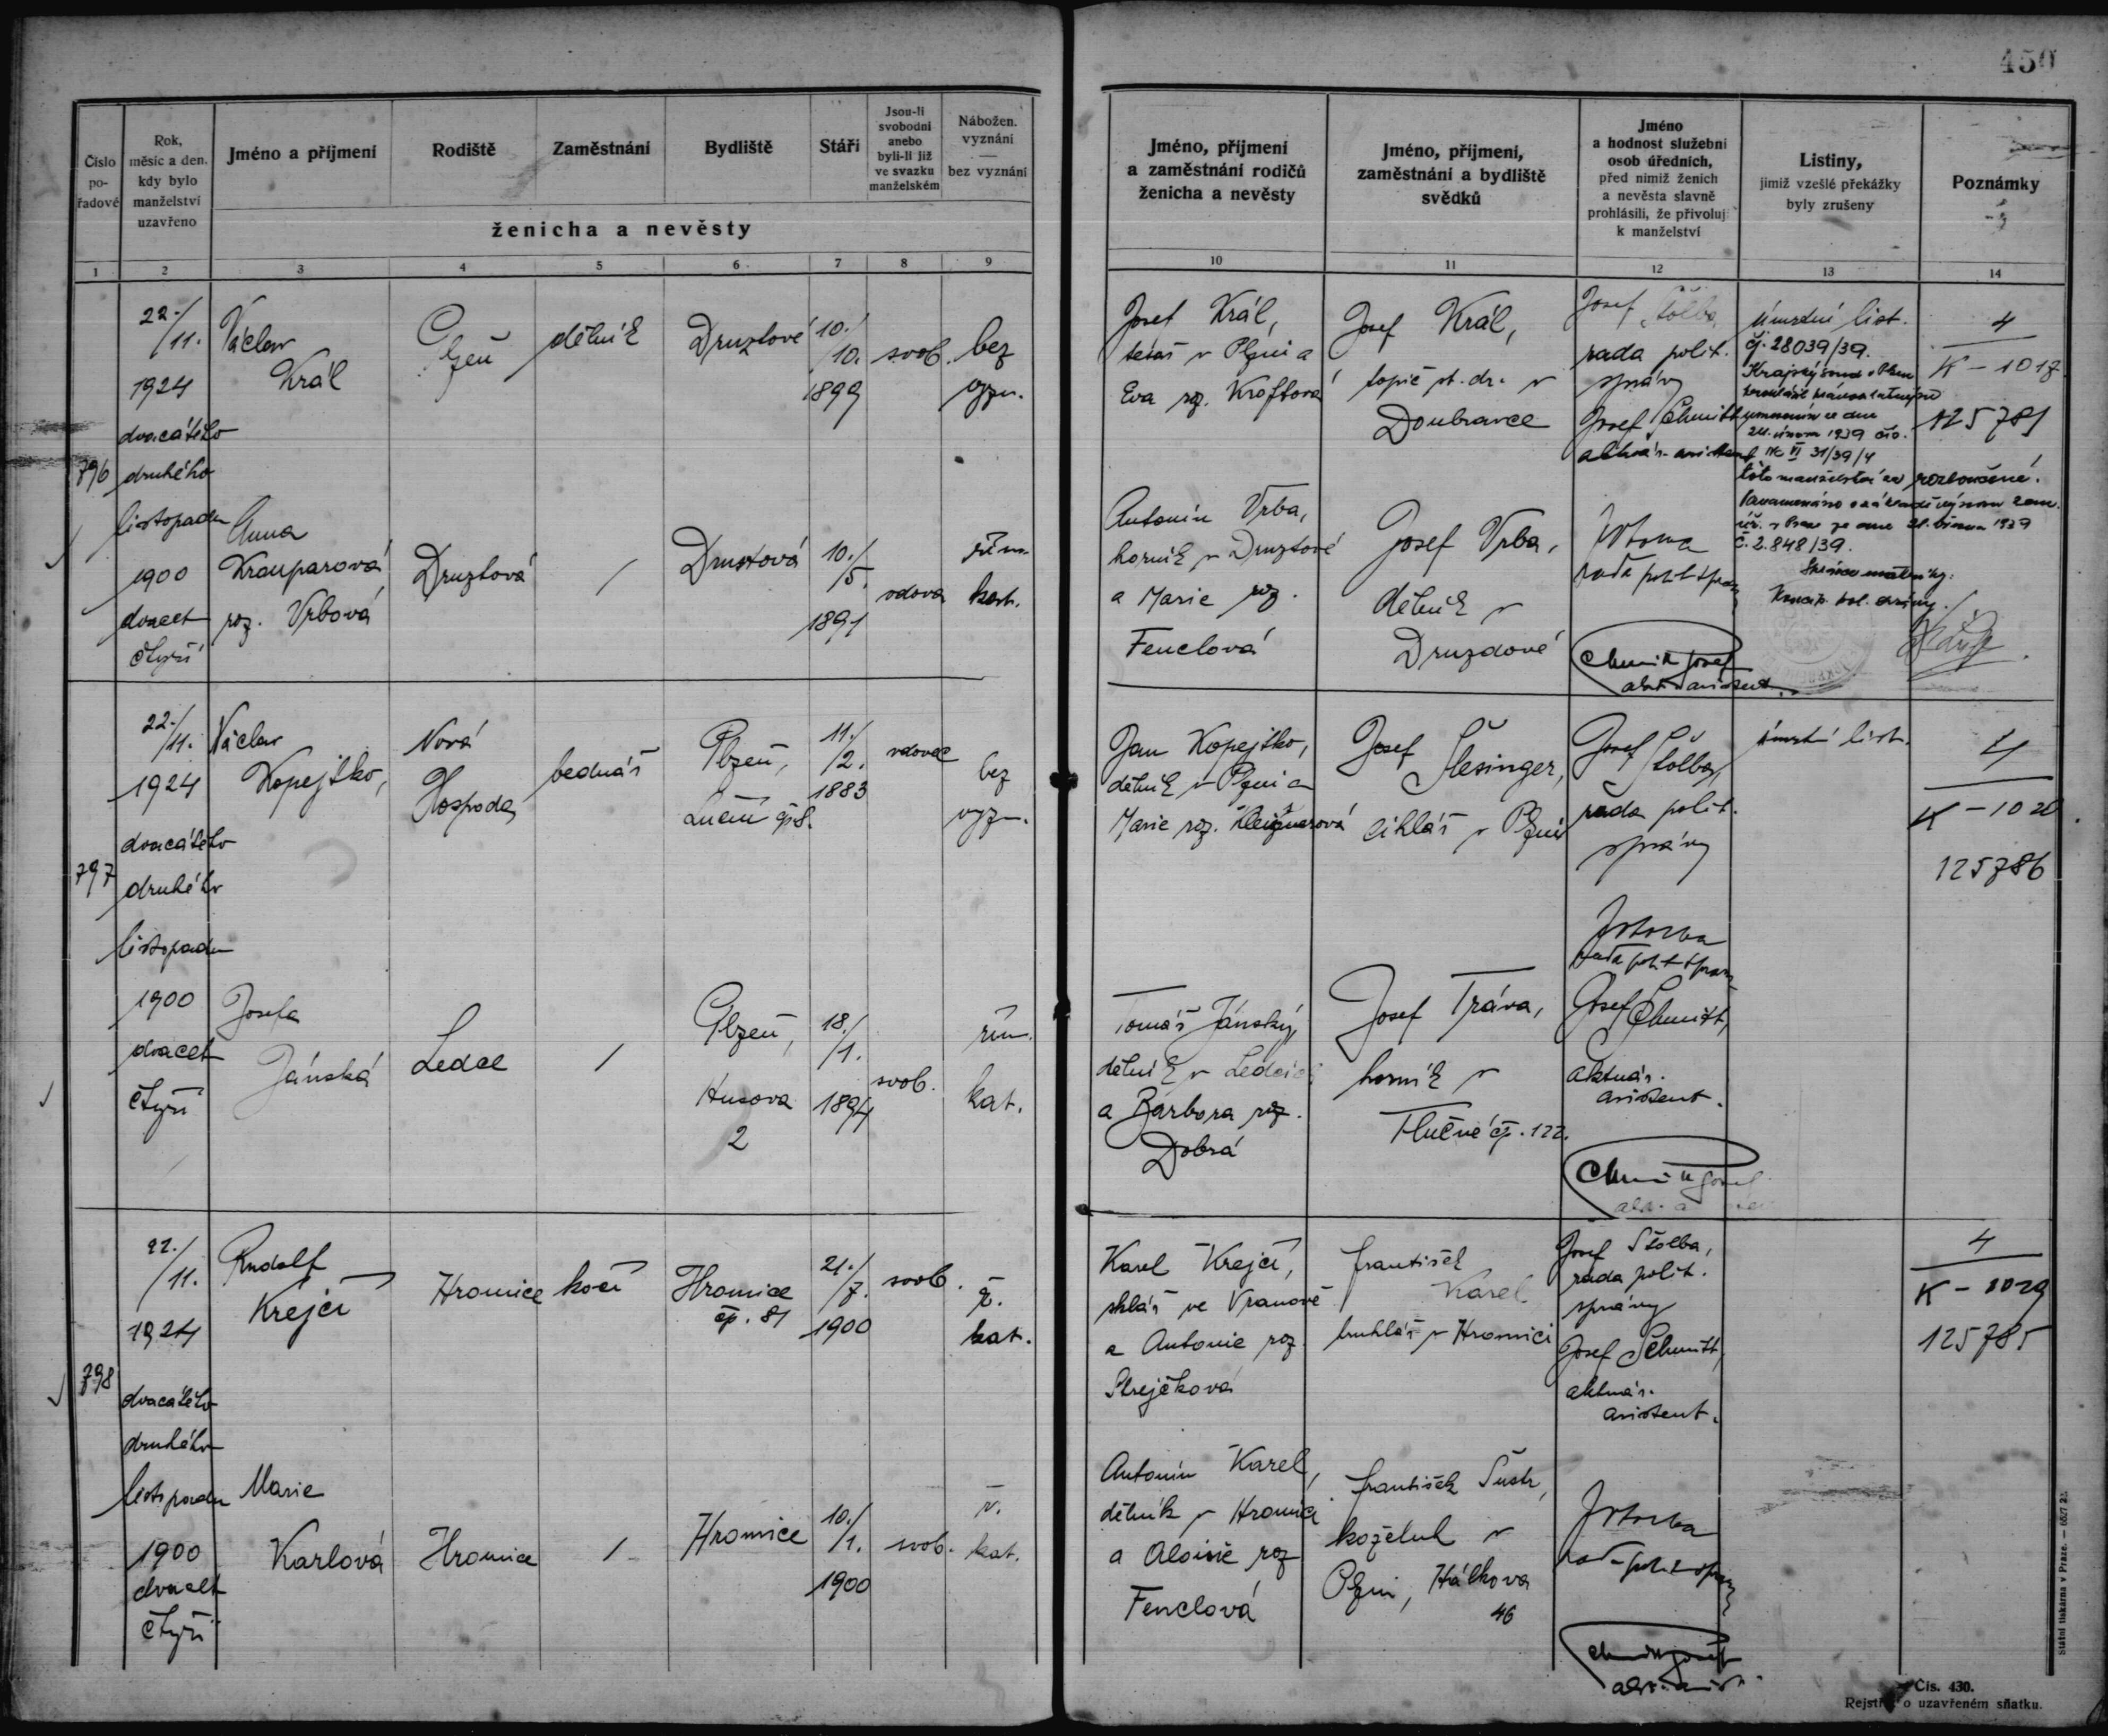 450
Číslo po-řadové
Rok, měsíc a den. kdy bylo manželství uzavřeno
Jméno a příjmení
Rodiště
Zaměstnání
Bydliště
Stáří
Jsou-li svobodni anebo byli-li již ve svazku manželském
Nábožen. vyznání — bez vyznání
ženicha a nevěsty
Jméno, příjmení a zaměstnání rodičů ženicha a nevěsty
Jméno, příjmení, zaměstnání a bydliště svědků
Jméno a hodnost služební osob úředních, před nimiž ženich a nevěsta slavně prohlásili, že přivolují k manželství
Listiny, jimiž vzešlé překážky byly zrušeny
Poznámky
1 2 3 4 5 6 7 8 9 10 11 12 13 14
796
22./11.
1924
dvacátého
druhého
listopadu
1900
dvacet
čtyři
Václav
Král
Plzeň
dělník
Druztové
10./10.
1899
svob.
bez
vyzn.
Josef Král,
tesař v Plzni a
Eva roz. Kroftová
Josef Král,
topič st. dr. v
Doubravce
Josef Štolba,
rada polit.
správy
Josef Schmitt
aktuár. asistent
Úmrtní list.
čj. 28039/39.
Krajský soud v Plzni
24. února 1939 čís.
31/39/4
toto manželství za rozloučené.
č. 2.848/39.
4
K - 1017
125781
Anna
Krauparová
roz. Vrbová
Druztová
/
Druztová
10./5.
1891
vdova
řím.
kat.
Antonín Vrba,
horník v Druztové
a Marie roz.
Fenclová
Josef Vrba,
dělník v
Druzdové
rada polit správy
Schmitt Josef
akt. asistent.
797
22./11.
1924
dvacátého
druhého
listopadu
1900
dvacet
čtyři
Václav
Kopejtko,
Nová
Hospoda
bednář
Plzeň,
Luční čp 8.
11./2.
1883
vdovec
bez
vyzn.
Jan Kopejtko,
dělník v Plzni a
Marie roz.
Josef
Šlesinger,
cihlář v Plzni
Josef
Štolba,
rada polit.
správy
úmrtní list.
4
K - 1020
125786
rada polit správy
Josefa
Jánská
Ledce
/
Plzeň,
Husova
2
18./1.
1894
svob.
řím.
kat.
Tomáš Jánský,
dělník v Ledcích
a Barbora roz.
Dobrá
Josef Tráva,
horník v
Tlučné čp. 122.
Josef Schmitt,
aktuár.
asistent.
Schmitt Josef
798
22./11.
1924
dvacátého
druhého
listopadu
1900
dvacet
čtyři
Rudolf
Krejčí
Hromice
kočí
Hromice
čp. 81
21./7.
1900
svob.
ř.
kat.
Karel Krejčí,
sklář ve Vranově
a Antonie roz.
Strejčková
František
Karel
truhlář v Hromici
Josef Štolba,
rada polit.
správy
Josef Schmitt,
aktuár.
asistent.
4
K - 1029
125785
Marie
Karlová
Hromice
/
Hromice
10./1.
1900
svob.
ř.
kat.
Antonín Karel,
dělník v Hromici
a Aloisie roz
Fenclová
František Šustr,
koželuh v
Plzni, Hálkova
46
rada polit správy
Schmitt Josef
Státní tiskárna v Praze.
Čís. 430.
Rejstřík o uzavřeném sňatku.